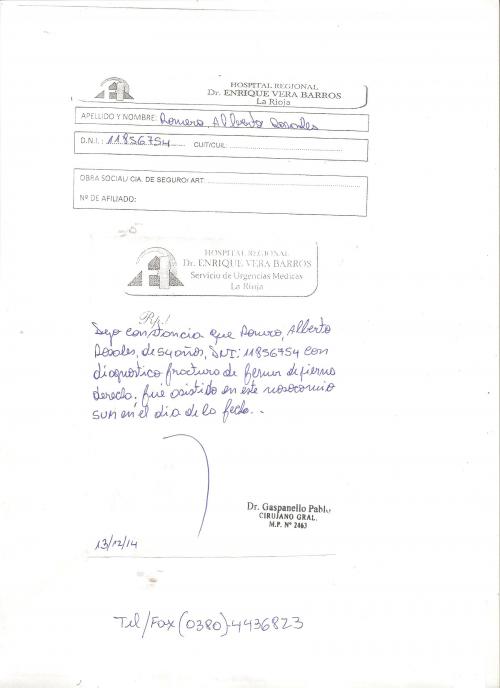 HOSPITAL REGIONAL
Dr. ENRIQUE VERA BARROS
La Rioja
APELLIDO Y NOMBRE: Romero, Alberto Rosales
D.N.I.: 11856754 CUIT/CUIL:
OBRA SOCIAL/ CIA. DE SEGURO/ ART:
Nº DE AFILIADO:
HOSPITAL REGIONAL
Dr. ENRIQUE VERA BARROS
Servicio de Urgencias Medicas
La Rioja
Rp/
Dejo constancia que Romero, Alberto
Rosales, de 54 años, DNI: 11856754 con
diagnostico fractura de femur de pierna
derecha, fue asistido en este nosocomio
SUM en el dia de la fecha..
Dr. Gaspanello Pablo
CIRUJANO GRAL.
M.P. Nº 2463
13/12/14
Tel/Fax (0380)-4436823